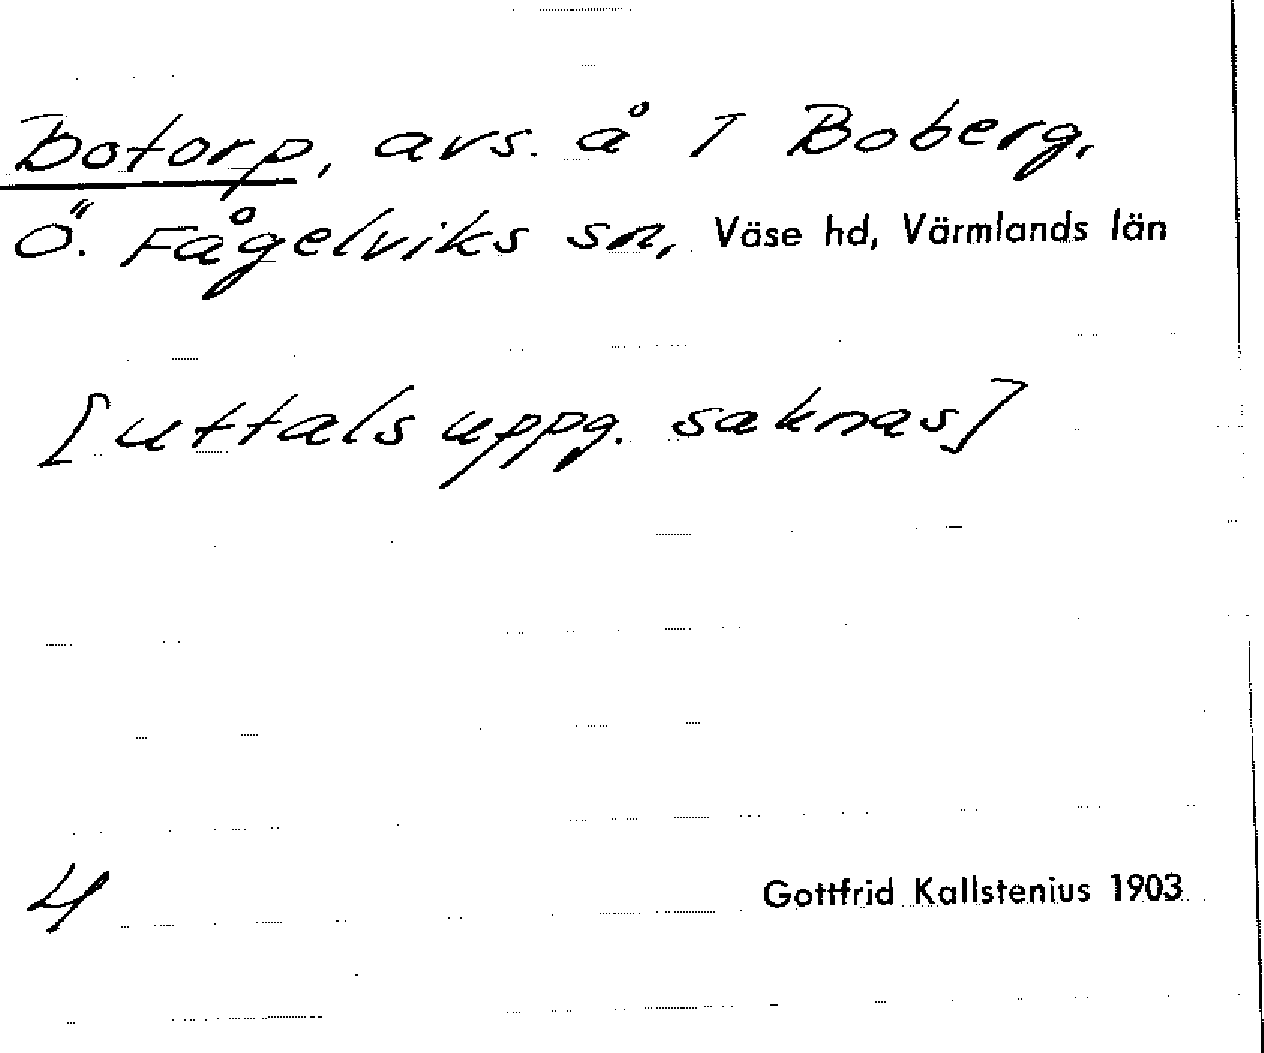 Botorp, avs. å 1 Boberg,
Ö. Fågelviks sn, Väse hd, Värmlands län
[uttalsuppg. saknas]
4
Gottfrid Kallstenius 1903